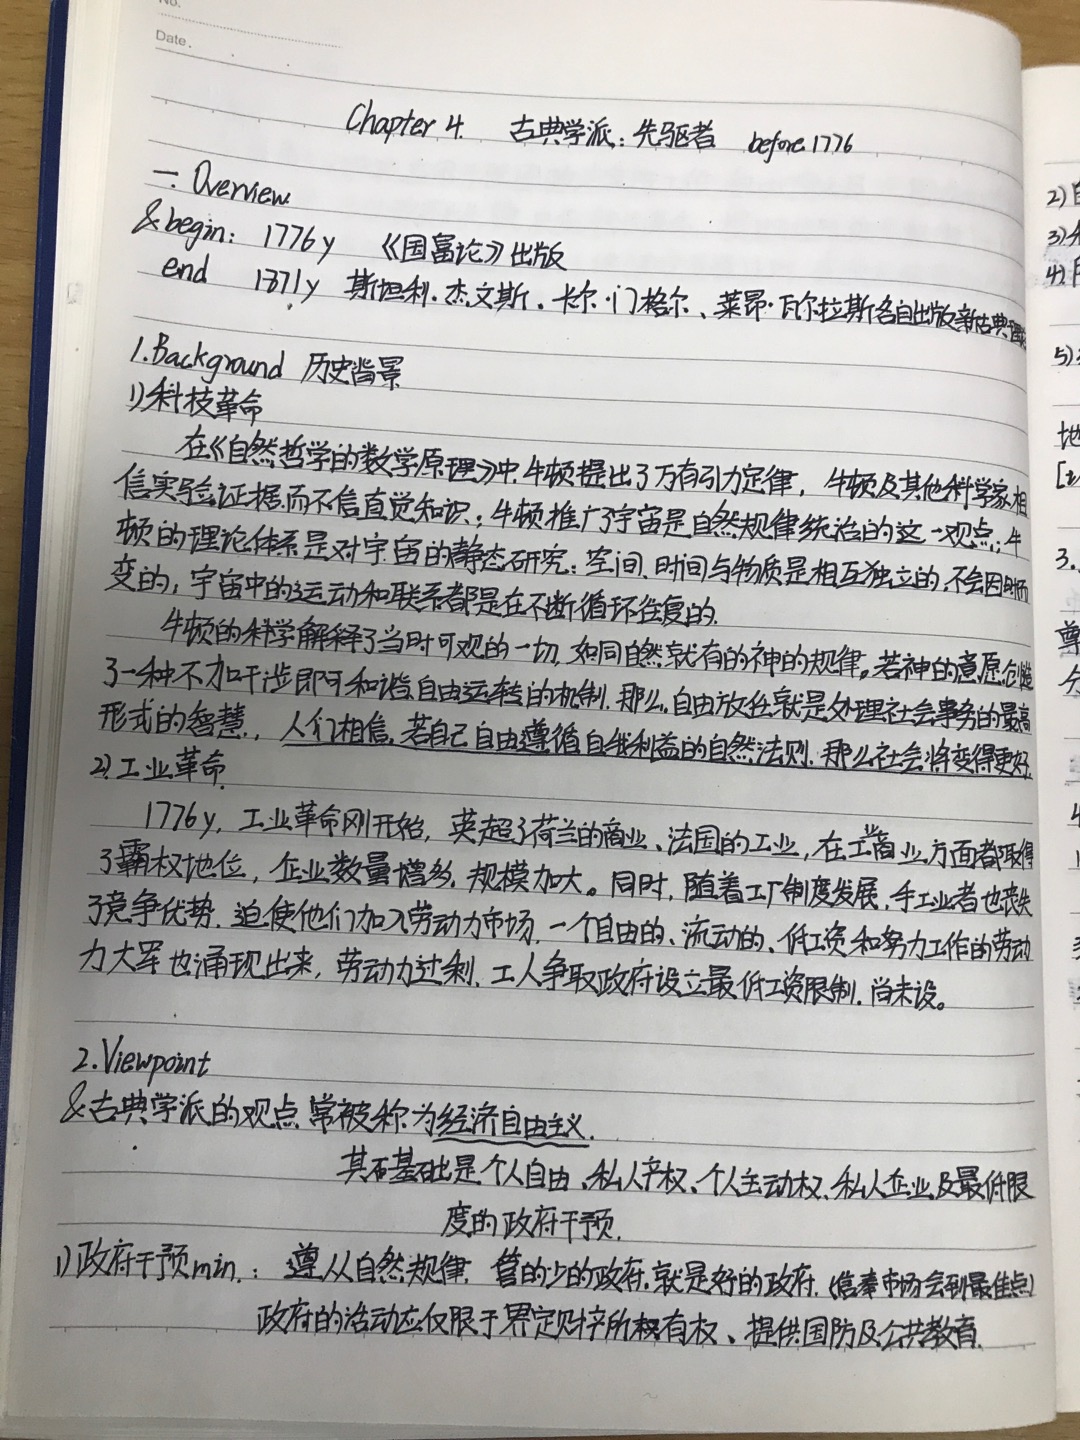 No.
Date.
Chapter 4. 古典学派：先驱者 before 1776
一. Overview
&begin: 1776y 《国富论》出版
end 1871y 斯坦利·杰文斯、卡尔·门格尔、莱昂·瓦尔拉斯各自出版新古典理论
1.Background 历史背景
1)科技革命
在《自然哲学的数学原理》中,牛顿提出了万有引力定律，牛顿及其他科学家相
信实验证据而不信直觉知识；牛顿推广了宇宙是自然规律统治的这一观点；牛
顿的理论体系是对宇宙的静态研究：空间、时间与物质是相互独立的,不会因时而
变的；宇宙中的运动和联系都是在不断循环往复的.
牛顿的科学解释了当时可观的一切,如同自然就有的神的规律。若神的意愿创造
了一种不加干涉即可和谐自由运转的机制,那么,自由放任就是处理社会事务的最高
形式的智慧., 人们相信,若自己自由遵循自我利益的自然法则,那么社会将变得更好.
2).工业革命
1776y, 工业革命刚开始，英超了荷兰的商业、法国的工业，在工商业方面都取得
了霸权地位，企业数量增多,规模加大。同时,随着工厂制度发展,手工业者也丧失
了竞争优势,迫使他们加入劳动力市场,一个自由的、流动的、低工资和努力工作的劳动
力大军也涌现出来，劳动力过剩、工人争取政府设立最低工资限制,尚未设。
2.Viewpoint
&古典学派的观点常被称为经济自由主义.
其基础是个人自由、私人产权、个人主动权、私人企业及最低限
度的政府干预.
1)政府干预min.: 遵从自然规律,管的少的政府,就是好的政府.(信奉市场会到最佳点)
政府的活动应仅限于界定财产所有权、提供国防及公共教育.
2)
3)
4)
5)
地
3.
尊